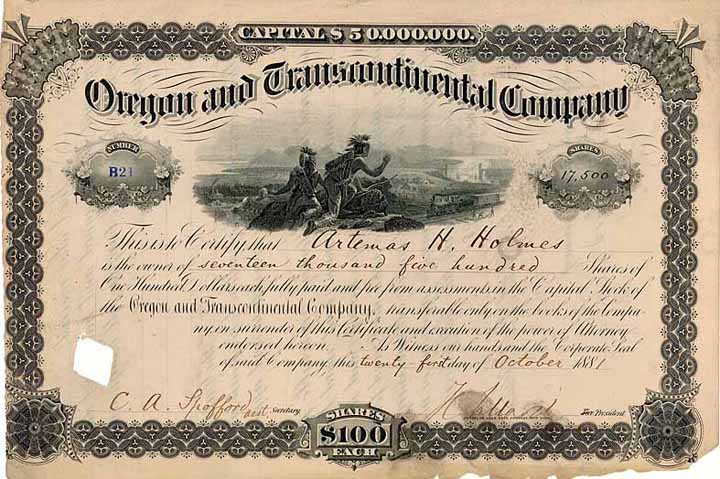 CAPITAL $50.000.000.
Oregon and Transcontinental Company
NUMBER
B21
SHARES
17,500
This is to Certify that Artemas H. Holmes
is the owner of seventeen thousand five hundred Shares of
One Hundred Dollars each, fully paid and free from assessments in the Capital Stock of
the Oregon and Transcontinental Company, transferable only on the books of the Compa-
ny on surrender of this Certificate and execution of the power of Attorney
endorsed hereon. As Witness our hands and the Corporate Seal
of said Company this twenty first day of October 1881
C. A. Spofford asst Secretary
Vice President
SHARES
$100
EACH